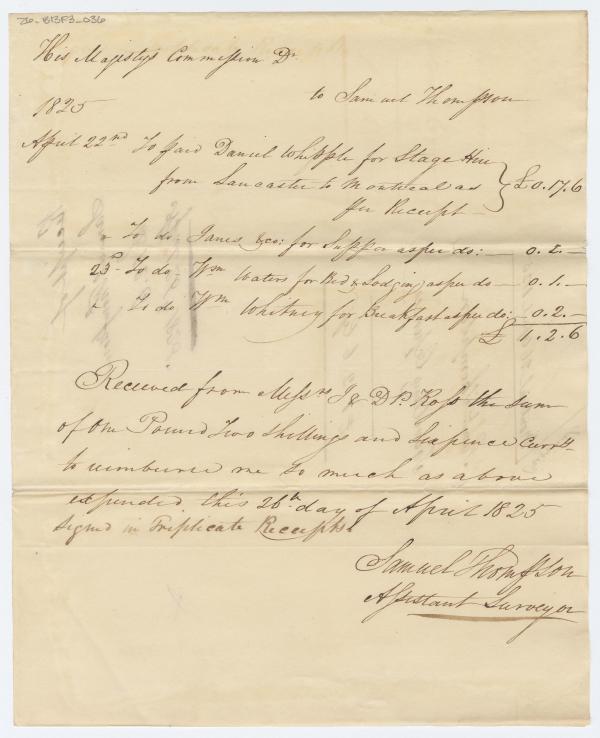 26-B13F3-036
His Majestys Commission Dr
to Samuel Thompson
1825
April 22nd To paid Daniel Whipple for Stage Hire
from Lancaster to Montreal as
per Receipt — £0.17.6
" To do Janes &co: for Supper as per do: — 0.2.—
23d To do — Wm Waters for Bed & Lodging as per do — 0.1.—
" To do Wm Whitney for Breakfast as per do: — 0.2.—
£ 1.2.6
Received from Messrs J & D P. Ross the sum
of One Pound Two Shillings and Sixpence Currcy
to reimburse me so much as above
expended this 26th day of April 1825
Signed in Triplicate Receipts
Samuel Thompson
Assistant Surveyor